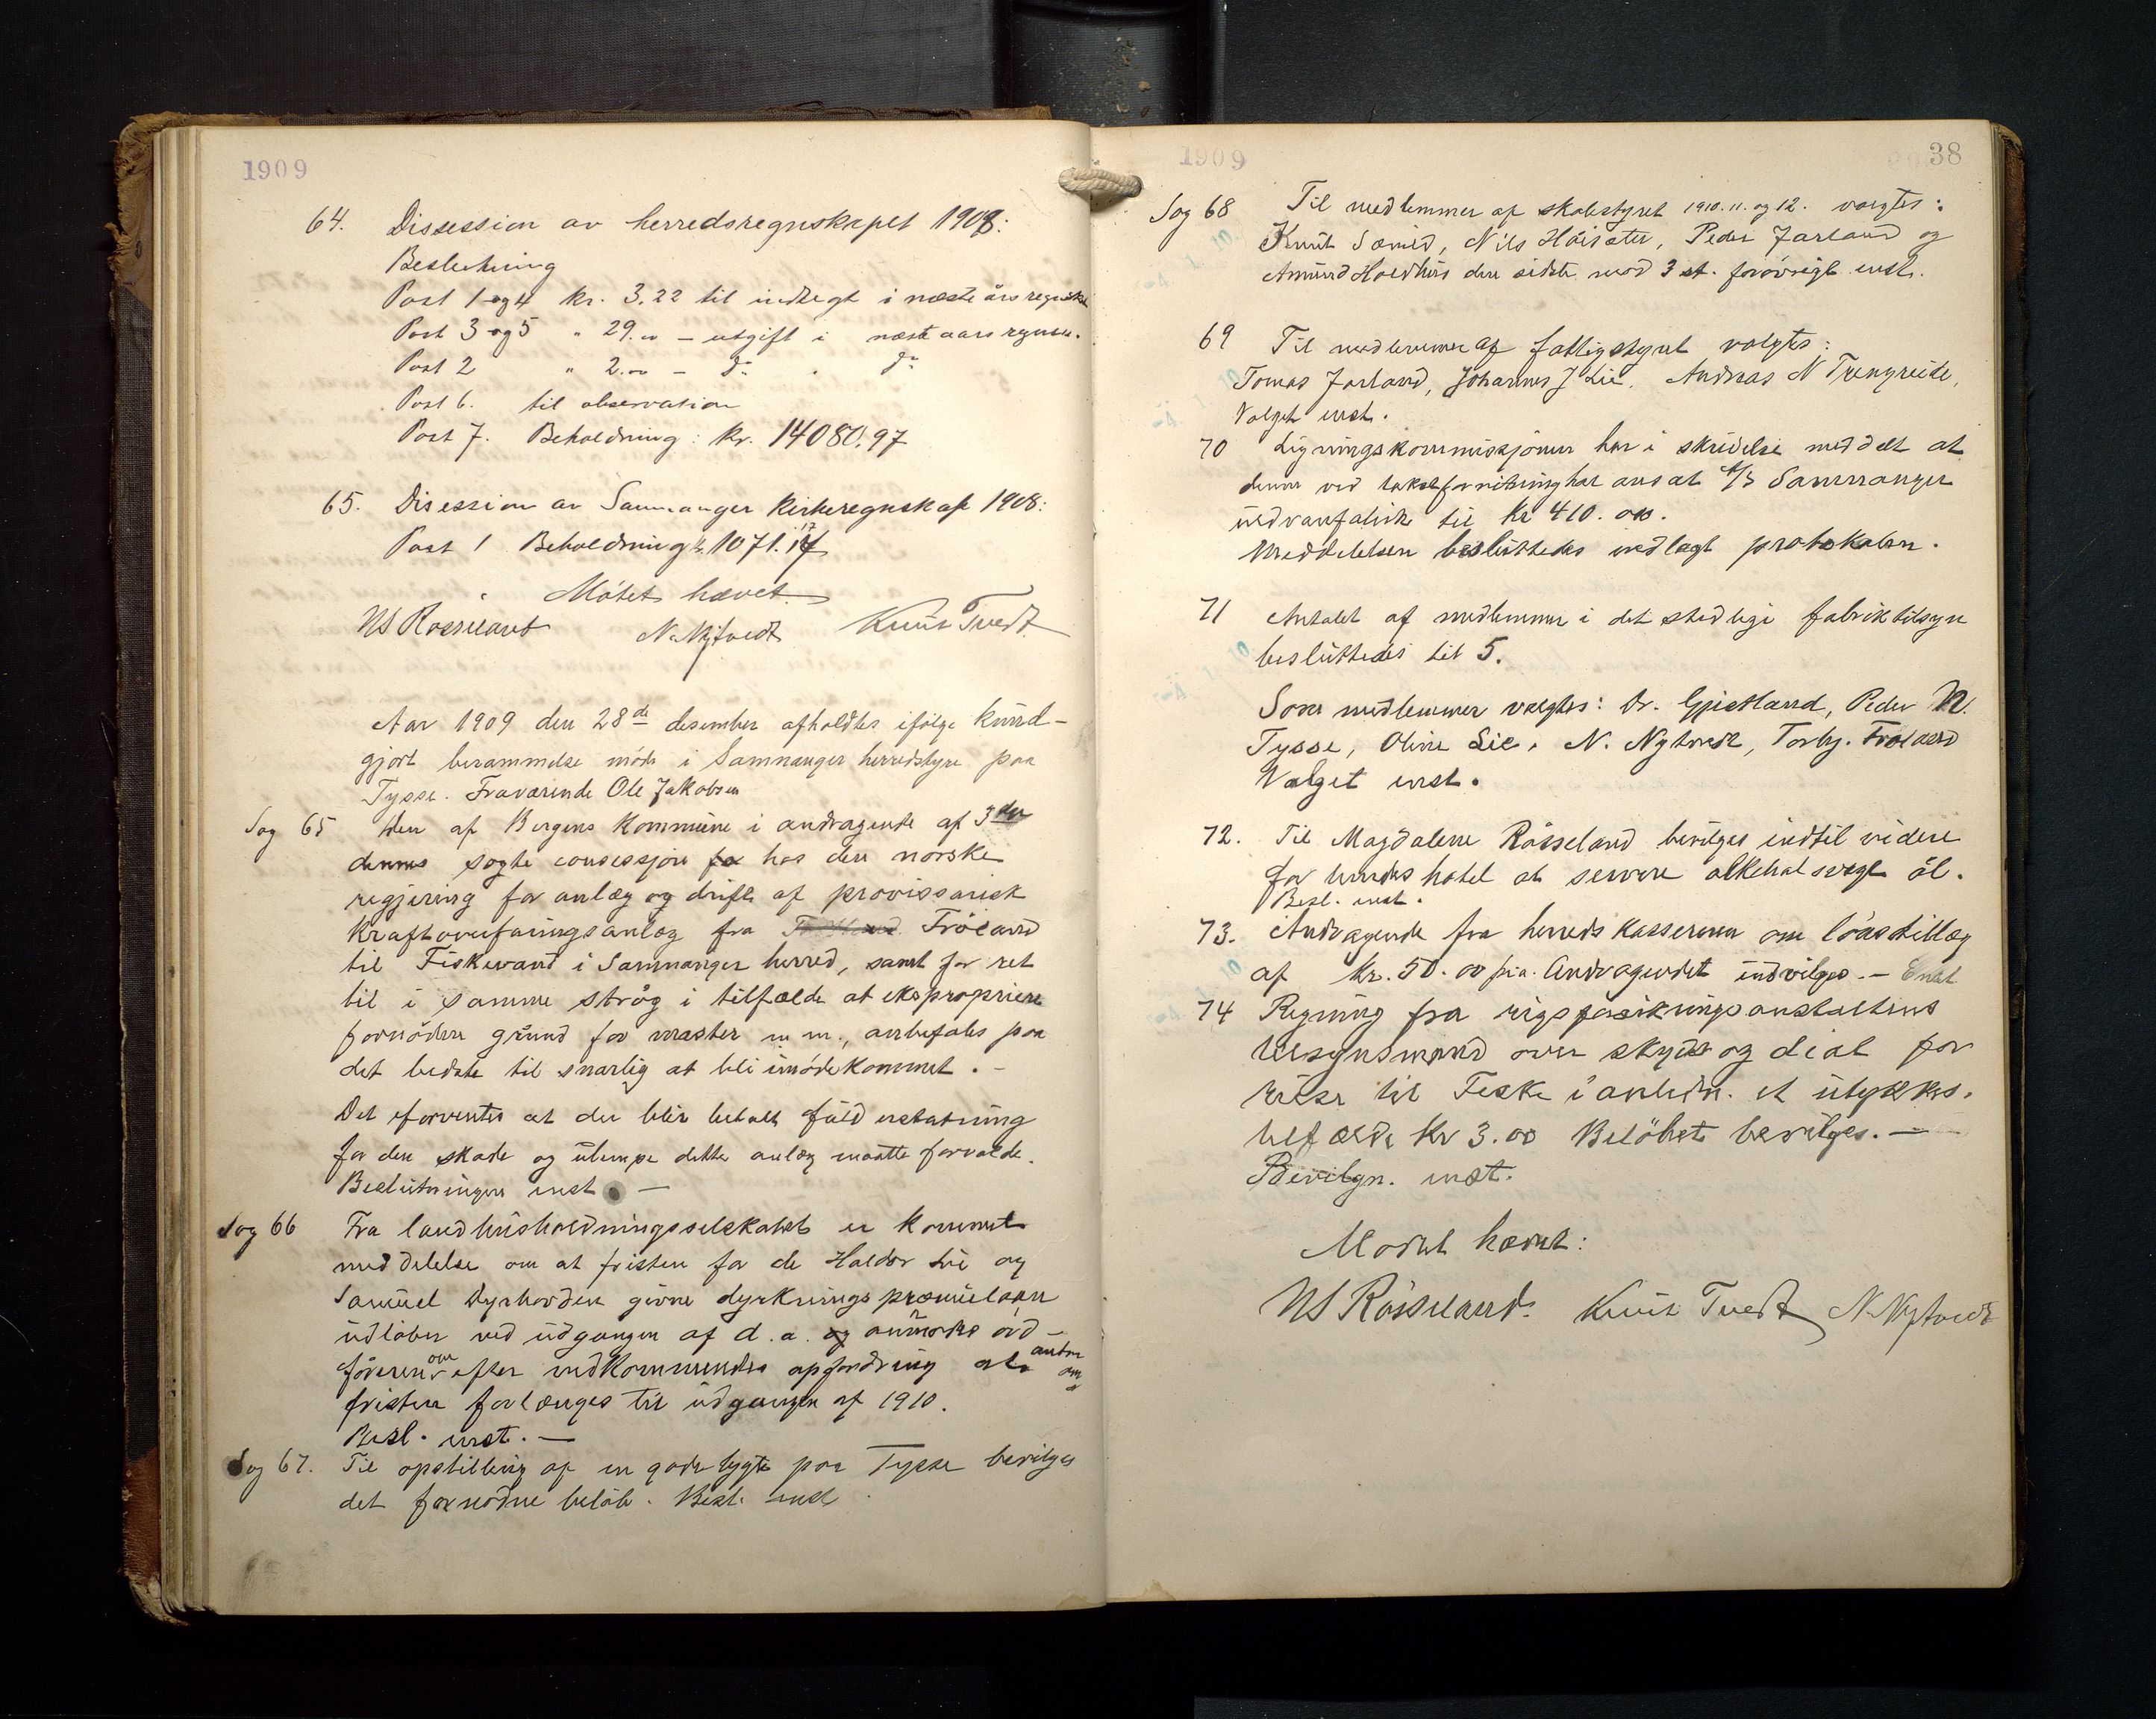 1909
64. Dissession av herredsregnskapet 1908:
Beslutning
Post 1 og 4 kr. 3.22 til indtegt i næste års regnska
Post 3 og 5 " 29.00 - utgift i næste aars regnsk.
Post 2 " 2.00 - do . do
Post 6. til observation
Post 7. Beholdning: kr. 14080.97
65. Disession av Samnanger Kirkeregnskap 1908:
Post 1 Beholdning kr. 1071.17
Mötet hævet.
NS Røsseland N. Nytvedt Knut Tvedt
Aar 1909 den 28de desember afholdtes ifölge kund-
gjort berammelse möde i Samnanger herredstyre paa
Tysse. Fraværende Ole Jakobsen
Sag 65 Den af Bergens Kommune i andragende af 3die
dennes sögte consesjon hos den norske
regjering for anlæg og drift af provissorisk
Kraftoverføringsanlæg fra Fröland
til Fiskevand i Samnanger herred, samt for ret
til i samme strög i tilfælde at ekspropriere
fornöden grund for master m.m., anbefales paa
det bedste til snarlig at bli imödekommet. -
Det forventes at der blir betalt fuld erstatning
for den skade og ulempe dette anlæg maatte forvolde.
Beslutningen enst. -
Sag 66 Fra landhusholdningsselskabet er kommet
meddelelse om at fristen for de Haldor Lie og
Samuel Dyrhovden givne dyrkningspræmielaan
udlöber ved udgangen af d.a. og anmodes ord-
föreren om efter vedkommendes opfordring at andra om
fristen forlænges til udgangen af 1910.
Besl. enst. -
Sag 67. Til opstilling af en gade lygte paa Tysse bevilges
det fornødne belöb. Besl. enst
1909
38
Sag 68 Til medlemmer af skolestyret 1910. 11. og 12. valgtes:
Knut Sæmed, Nils Höisæter, Peder Jarland og
Amund Holdhus den sidste med 3 st. forövrigt enst.
69 Til medlemmer af fattigstyret valgtes:
Tomas Jarland, Johannes J Lie, Andreas N Trengreide,
Valget enst.
70 Ligningskommisjonen har i skrivelse meddelt at
denne ved takstforretning har ansat A/S Samnanger
uldvarefabrik til kr 410.000.
Meddelelsen besluttedes vedlagt protokolen.
71 Antalet af medlemmer i det stedlige fabriktilsyn
besluttedes til 5.
Som medlemmer valgtes: Dr. Gjestland, Peder N.
Tysse, Oline Lie, N. Nytvedt, Torbj. Fröland
Valget enst.
72. Til Magdalene Rösseland bevilges indtil videre
for hendes hotel at servere alkoholsvagt öl.
Besl. enst.
73. Andragende fra herredskassereren om lönstillæg
af kr. 50.00 pr.a. Andragendet indvilges. - Enst
74 Regning fra rigsforsikringsanstaltens
tilsynsmand over skyds og diæt for
reise til Teske i anledn. et ulykkes-
tilfælde kr 3.00 Belöbet bevilges. -
Bevilgn. enst.
Mödet hævet:
NS Rösseland. Knut Tvedt N. Nytvedt